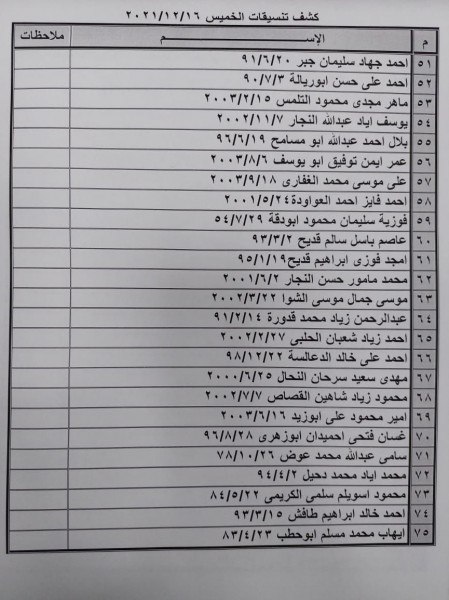 كشف تنسيقات الخميس ٢٠٢١/١٢/١٦
م الإســـــــم ملاحظات
٥١ احمد جهاد سليمان جبر ٩١/٦/٢٠
٥٢ احمد على حسن ابوريالة ٩٠/٧/٣
٥٣ ماهر مجدى محمود التلمس ٢٠٠٣/٢/١٥
٥٤ يوسف اياد عبدالله النجار ٢٠٠٢/١١/٧
٥٥ بلال احمد عبدالله ابو مسامح ٩٦/٦/١٩
٥٦ عمر ايمن توفيق ابو يوسف ٢٠٠٣/٨/٦
٥٧ على موسى محمد الغفارى ٢٠٠٣/٩/١٨
٥٨ احمد فايز احمد العواودة ٢٠٠١/٥/٢٤
٥٩ فوزية سليمان محمود ابودقة ٥٤/٧/٢٩
٦٠ عاصم باسل سالم قديح ٩٣/٣/٢
٦١ امجد فوزى ابراهيم قديح ٩٥/١/١٩
٦٢ محمد مامور حسن النجار ٢٠٠١/٦/٢
٦٣ موسى جمال موسى الشوا ٢٠٠٢/٣/٢٢
٦٤ عبدالرحمن زياد محمد قدورة ٩١/٢/١٤
٦٥ احمد زياد شعبان الحلبى ٢٠٠٢/٢/٢٧
٦٦ احمد على خالد الدعالسة ٩٨/١٢/٢٢
٦٧ مهدى سعيد سرحان النحال ٢٠٠٠/٦/٢٥
٦٨ محمود زياد شاهين القصاص ٢٠٠٢/٧/٧
٦٩ امير محمود على ابوزيد ٢٠٠٣/٦/١٦
٧٠ غسان فتحى احميدان ابوزهرى ٩٦/٨/٢٨
٧١ سامى عبدالله محمد عوض ٧٨/١٠/٢٦
٧٢ محمد اياد محمد دحيل ٩٤/٤/٢
٧٣ محمود اسويلم سلمى الكريمى ٨٤/٥/٢٢
٧٤ احمد خالد ابراهيم طافش ٩٣/٣/١٥
٧٥ ايهاب محمد مسلم ابوحطب ٨٣/٤/٢٣